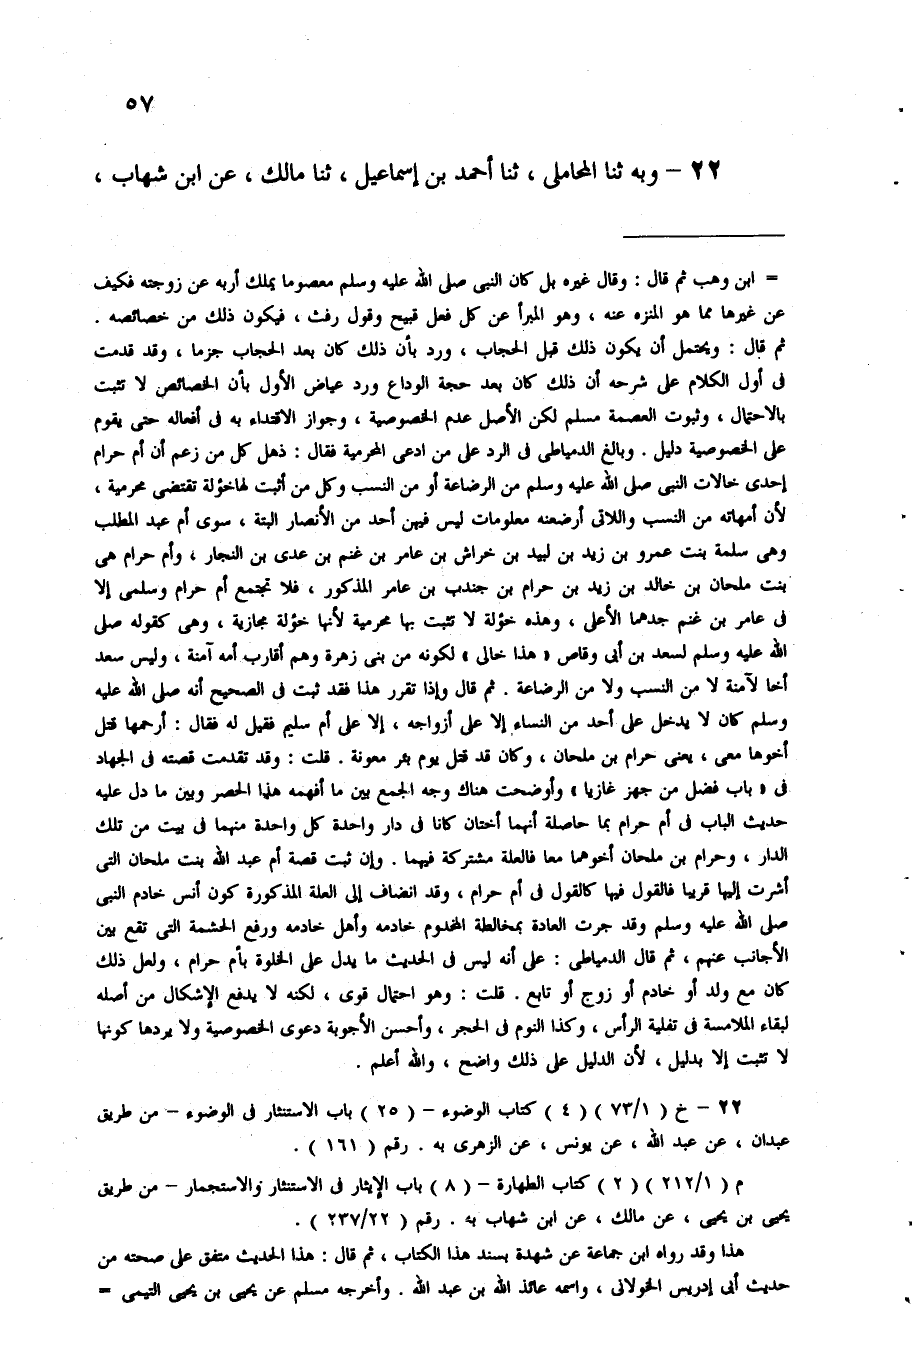 ٥٧
٢٢ – وبه ثنا المحاملي ، ثنا أحمد بن إسماعيل ، ثنا مالك ، عن ابن شهاب ،
= ابن وهب ثم قال : وقال غيره بل كان النبى صلى الله عليه وسلم معصوما يملك أربه عن زوجته فكيف
عن غيرها مما هو المنزه عنه ، وهو المبرأ عن كل فعل قبيح وقول رفث ، فيكون ذلك من خصائصه .
ثم قال : ويحتمل أن يكون ذلك قبل الحجاب ، ورد بأن ذلك كان بعد الحجاب جزما ، وقد قدمت
فى أول الكلام على شرحه أن ذلك كان بعد حجة الوداع ورد عياض الأول بأن الخصائص لا تثبت
بالاحتمال ، وثبوت العصمة مسلم لكن الأصل عدم الخصوصية ، وجواز الاقتداء به فى أفعاله حتى يقوم
على الخصوصية دليل . وبالغ الدمياطى فى الرد على من ادعى المحرمية فقال : ذهل كل من زعم أن أم حرام
إحدى خالات النبى صلى الله عليه وسلم من الرضاعة أو من النسب وكل من أثبت لهاخؤلة تقتضى محرمية ،
لأن أمهاته من النسب واللاتى أرضعنه معلومات ليس فيهن أحد من الأنصار البتة ، سوى أم عبد المطلب
وهى سلمة بنت عمرو بن زيد بن لبيد بن خراش بن عامر بن غنم بن عدى بن النجار ، وأم حرام هى
بنت ملحان بن خالد بن زيد بن حرام بن جندب بن عامر المذكور ، فلا تجتمع أم حرام وسلمى إلا
فى عامر بن غنم جدهما الأعلى ، وهذه خؤلة لا تثبت بها محرمية لأنها خؤلة مجازية ، وهى كقوله صلى
الله عليه وسلم لسعد بن أبى وقاص « هذا خالى » لكونه من بنى زهرة وهم أقارب أمه آمنة ، وليس سعد
أخا لآمنة لا من النسب ولا من الرضاعة . ثم قال وإذا تقرر هذا فقد ثبت فى الصحيح أنه صلى الله عليه
وسلم كان لا يدخل على أحد من النساء إلا على أزواجه ، إلا على أم سليم فقيل له فقال : أرحمها قتل
أخوها معى ، يعنى حرام بن ملحان ، وكان قد قتل يوم بئر معونة . قلت : وقد تقدمت قصته فى الجهاد
فى « باب فضل من جهز غازيا » وأوضحت هناك وجه الجمع بين ما أفهمه هذا الحصر وبين ما دل عليه
حديث الباب فى أم حرام بما حاصلة أنهما أختان كانا فى دار واحدة كل واحدة منهما فى بيت من تلك
الدار ، وحرام بن ملحان أخوهما معا فالعلة مشتركة فيهما . وإن ثبت قصة أم عبد الله بنت ملحان التى
أشرت إليها قريبا فالقول فيها كالقول فى أم حرام ، وقد انضاف إلى العلة المذكورة كون أنس خادم النبى
صلى الله عليه وسلم وقد جرت العادة بمخالطة المخدوم خادمه وأهل خادمه ورفع الحشمة التى تقع بين
الأجانب عنهم ، ثم قال الدمياطى : على أنه ليس فى الحديث ما يدل على الخلوة بأم حرام ، ولعل ذلك
كان مع ولد أو خادم أو زوج أو تابع . قلت : وهو احتمال قوى ، لكنه لا يدفع الإشكال من أصله
لبقاء الملامسة فى تفلية الرأس ، وكذا النوم فى الحجر ، وأحسن الأجوبة دعوى الخصوصية ولا يردها كونها
لا تثبت إلا بدليل ، لأن الدليل على ذلك واضح ، والله أعلم .
٢٢ – خ ( ٧٣/١ ) ( ٤ ) كتاب الوضوء – ( ٢٥ ) باب الاستنثار فى الوضوء – من طريق
عبدان ، عن عبد الله ، عن يونس ، عن الزهرى به . رقم ( ١٦١ ) .
م ( ٢١٢/١ ) ( ٢ ) كتاب الطهارة – ( ٨ ) باب الإيثار فى الاستنثار والاستجمار – من طريق
يحيى بن يحيى ، عن مالك ، عن ابن شهاب به . رقم ( ٢٣٧/٢٢ ) .
هذا وقد رواه ابن جماعة عن شهدة بسند هذا الكتاب ، ثم قال : هذا الحديث متفق على صحته من
حديث أبى إدريس الخولانى ، واسمه عائذ الله بن عبد الله . وأخرجه مسلم عن يحيى بن يحيى التيمى =